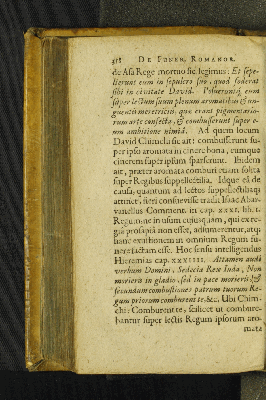 318 DE FUNER. ROMANOR.
de Asa Rege mortuo sic legimus: Et sepe-
lierunt eum in sepulcro suo, quod foderat
sibi in civitate David. Posuerunt eum
super lectum suum plenum aromatibus & un-
guentis meretriciis, quæ erant pigmentario-
rum arte confecta, & combusserunt super e-
um ambitione nimiâ. Ad quem locum
David Chimchi sic ait: combusserunt su-
per ipso aromata in cinere bona, eumque
cinerem super ipsum sparserunt. Ibidem
ait, præter aromata comburi etiam solita
super Regibus suppellectilia. Idque eâ de
causa, quantum ad lectos suppellectiliaq;
attinet, fieri consuevisse tradit Isaac Abar-
vanellus Comment. in cap. XXXI. lib. 1.
Regum, ne in usum cujusquam, qui è re-
giâ prosapiâ non esset, adsumerentur, atq;
hanc exustionem in omnium Regum fu-
nere factam esse. Hoc sensu intelligendus
Hieremias cap. XXXIIII. Attamen audi
verbum Domini, Sedecia Rex Iuda, Non
morieris in gladio, sed in pace morieris &
secundum combustiones patrum tuorum Re-
gum priorum comburent te. &c. Ubi Chim-
chi: Comburent te, scilicet ut combure-
bantur super lectis Regum ipsorum aro-
mata